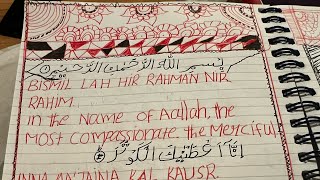 بِسْمِ اللّٰهِ الرَّحْمٰنِ الرَّحِيْمِ
BISMIL LAH HIR RAHMAN NIR
RAHIM
in the Name of Aallah, the
most Compassionate the Merciful
اِنَّآ اَعْطَيْنٰكَ الْكَوْثَرَ
INNA A'ATAINA KAL KAUSR